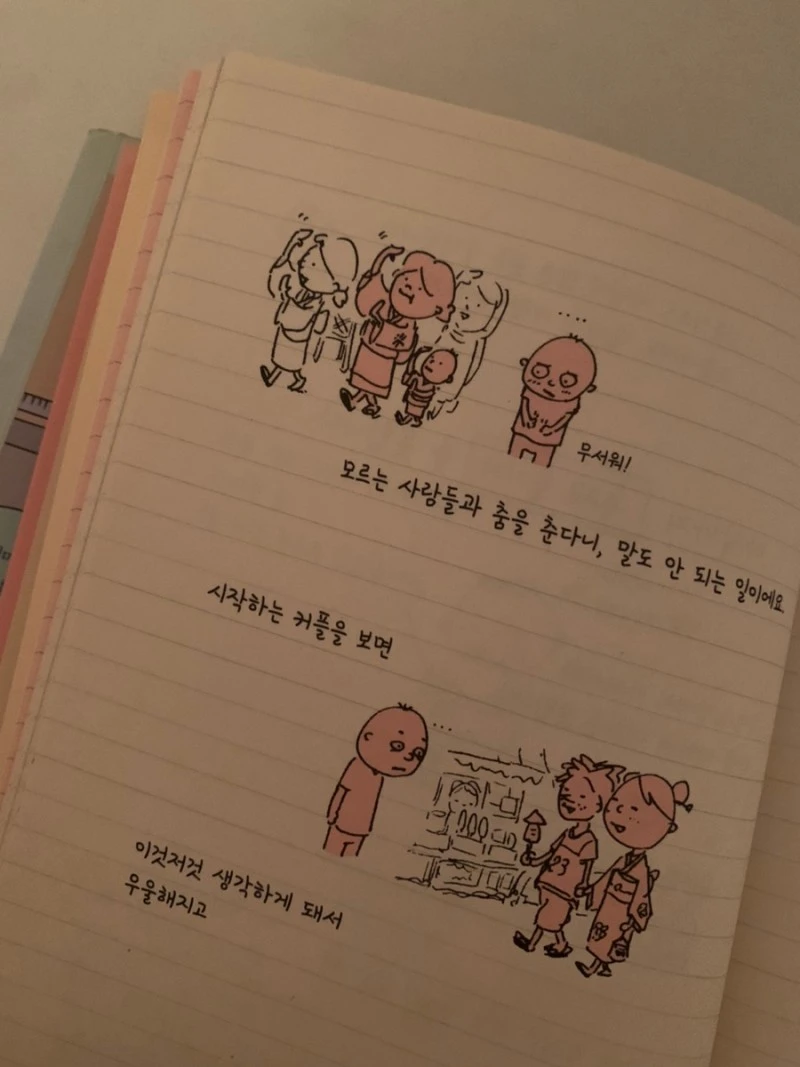 ....
무서워!
모르는 사람들과 춤을 춘다니, 말도 안 되는 일이에요
시작하는 커플을 보면
...
이것저것 생각하게 돼서
우울해지고